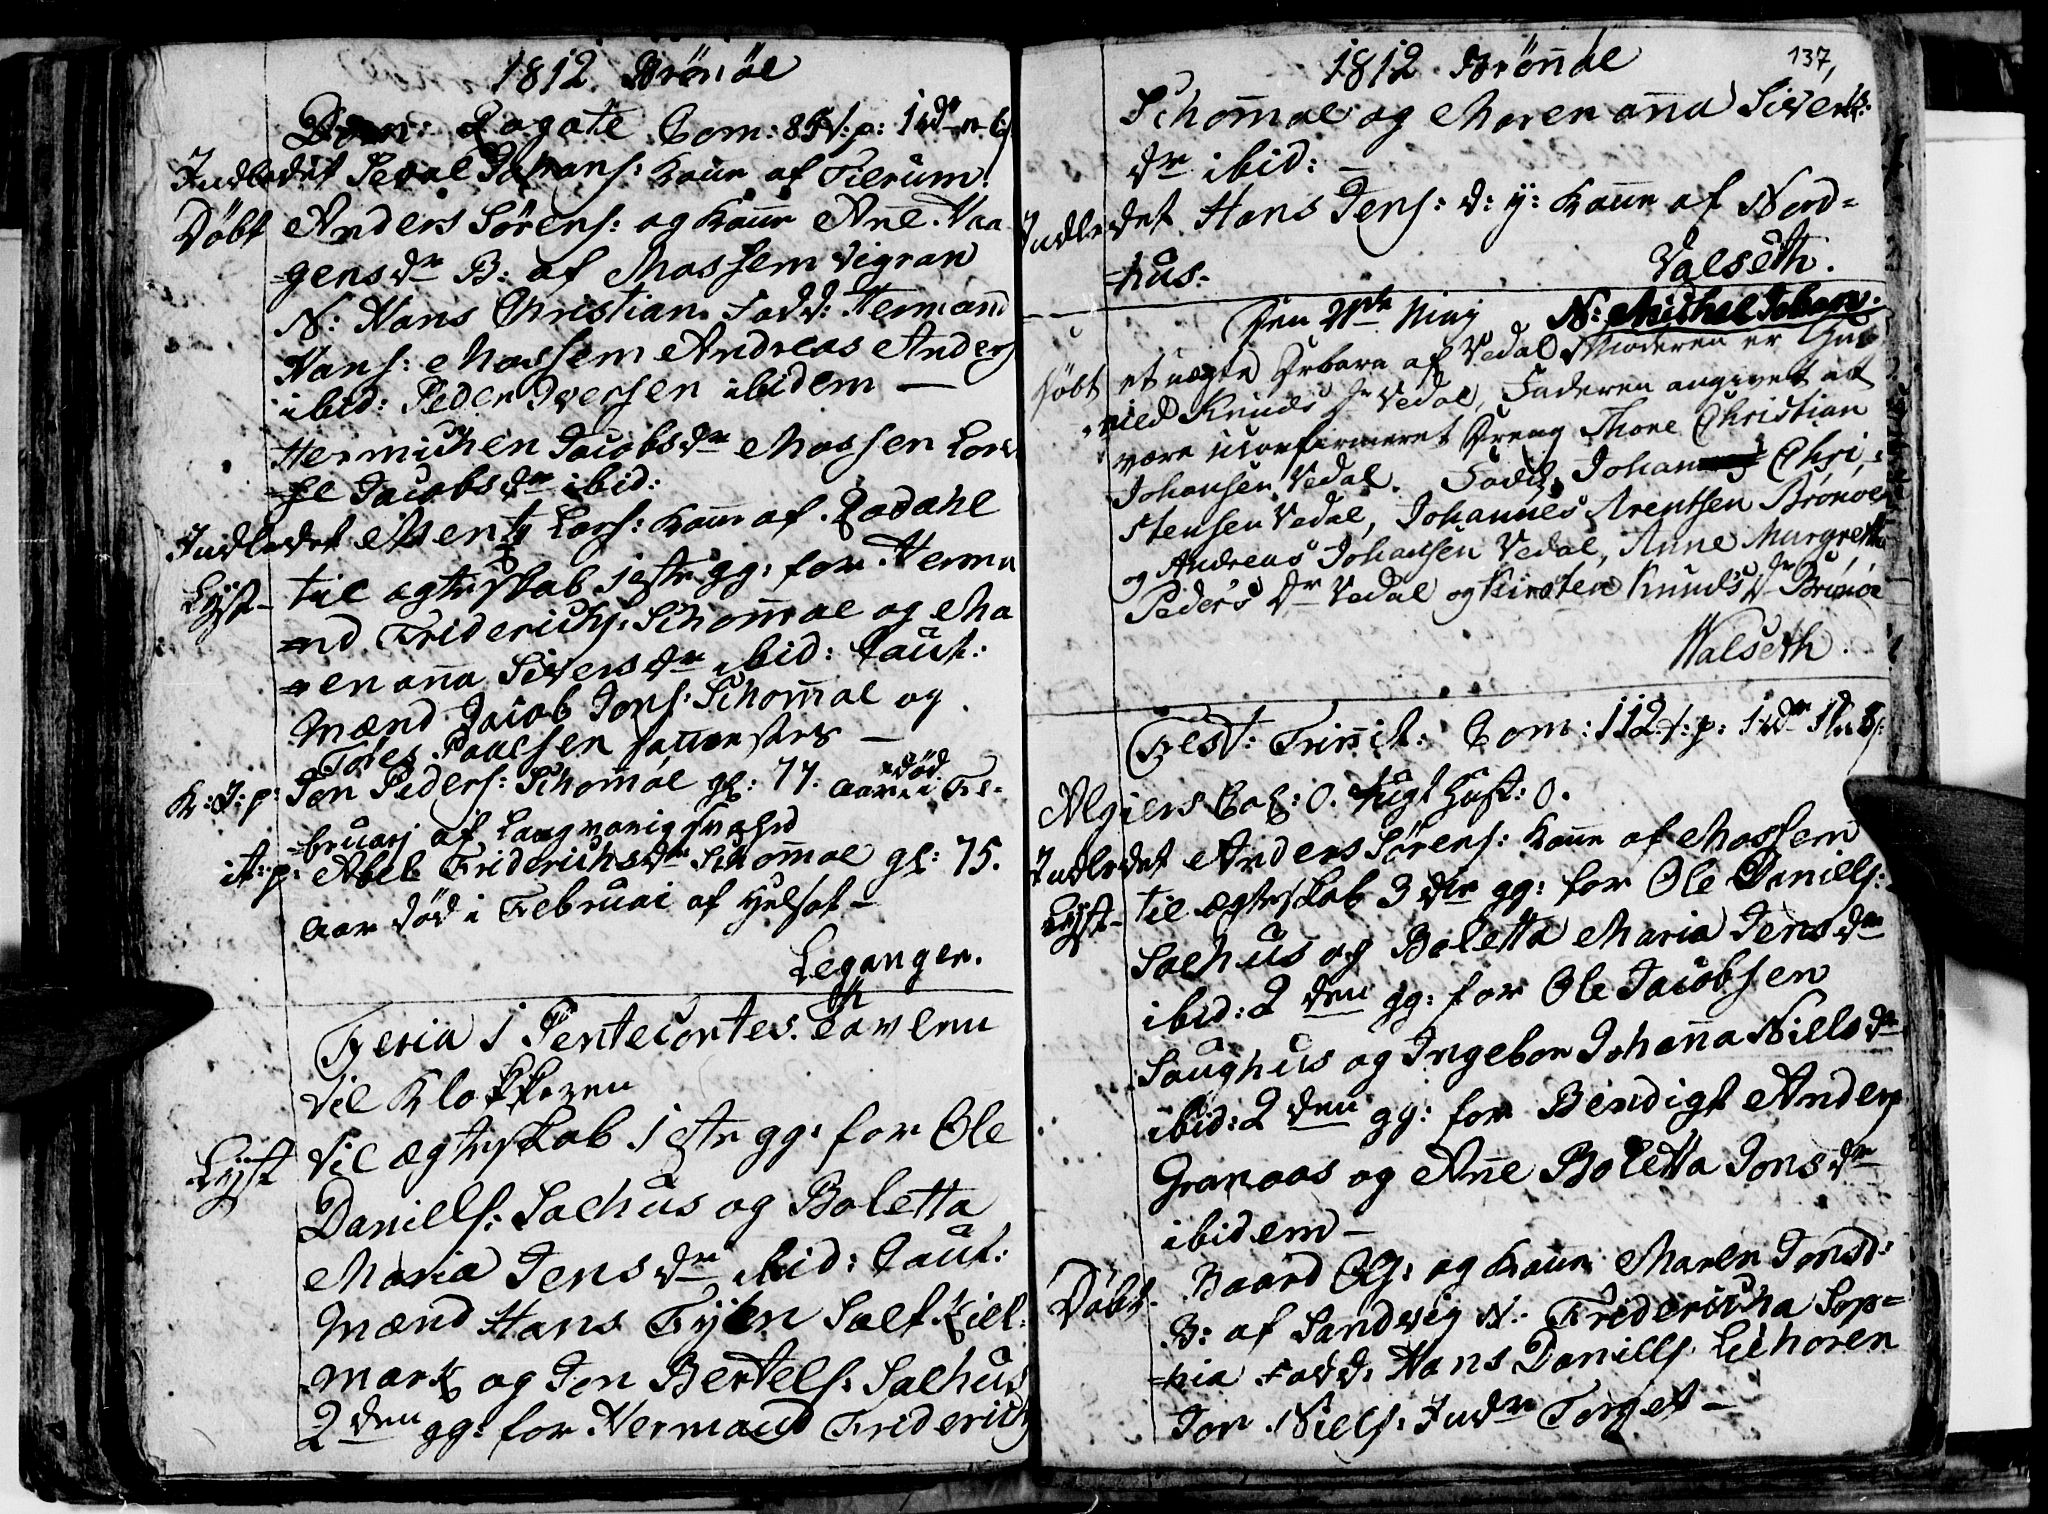 1812. Brönöe
Dom: Rogate Com: 85
Indledet Sevel Johans: Kone af Tilrum.
Döbt Anders Sörens: og Kone Añe Haa
=gensdr B: af Mossem Vigran
N: Hans Christian. Fadd: Hermand
Hans: Mossem Andreas Anders
ibid: Peder Iversen ibidem —
Hermichen Jacobsdr Mossen Lors
Jacobsdr ibid:
Indledet Mentz Lars: Kone af Rodahl
Lyst til ægteskab 1ste gg: for Herma
=nd Friderichs: Schom̄oe og Ma
=ren aña Siversdr ibid: Caut:
Mænd Jacob Jons: Schom̄oe og
Tores Paalsen
K: J: p: Jon Peders: Schom̄oe gl: 77. aar død i Fe-
=bruarj af Langvarig
it: p: Abel Friderichsdr Schom̄oe gl: 75.
aar død i Februai af
Leganger.
Feria 1 Pentecostes.
til Klokkeren
Lyst til ægteskab 1ste gg: for Ole
Daniels: Salhus og Boletta
Maria Jensdr ibid: Caut:
Mænd Hans
mark og Jon Bertels: Salhus
2den gg: for Hermand Friderichs
1812 Brön̄öe
137,
Schom̄oe og Maren aña Siverts:
dr ibid: —
Indledet Hans Jens: d: y: Kone af Nord=
=hus.
Valseth.
Den 21de May N: Michel Johan.
Döbt et uægte Drbarn af Vedal Moderen er Gun
=nild Knuds Dr Vedal, Faderen angivet att
være uconfirmeret Dreng Thore Christian
Johansen Vedal. Fadd. Johan Chri,=
stensen Vedal, Johannes Arentsen Brönöe
og Andreas Johansen Vedal, Anne Margrethe
Peders Dr Vedal og Kirsten Knuds Dr Brönöe
Walseth.
Fest: Trinit: Com: 112
Algiers Col: 0. Tugt Hust: 0.
Indledet Anders Sörens: Kone af Mossem
Lyst til ægteskab 3die gg: for Ole Daniels:
Salhus og Boletta Maria Jensdr
ibid: 2den gg: for Ole Jacobsen
Saughus og Ingebor Johaña Nielsdr
ibid: 2den gg: for Bendigt Anders
Granaas og Añe Boletta Jonsdr
ibidem —
Döbt. Baard Ols: og Kone Maren Jonsd:
B: af Sandvig N: Fridericha Sop=
=hia Fadd. Hans Daniels
Jon Niels: Indr Torget —